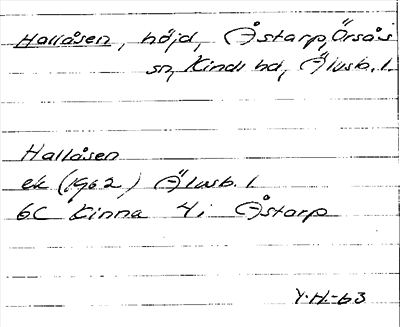 Hallåsen, höjd, Åstarp, Örsås
sn, Kinds hd, Älvsb. l.
Hallåsen
ek (1962) Älvsb. l
6C Kinna 4i Åstarp
Y.H.-63